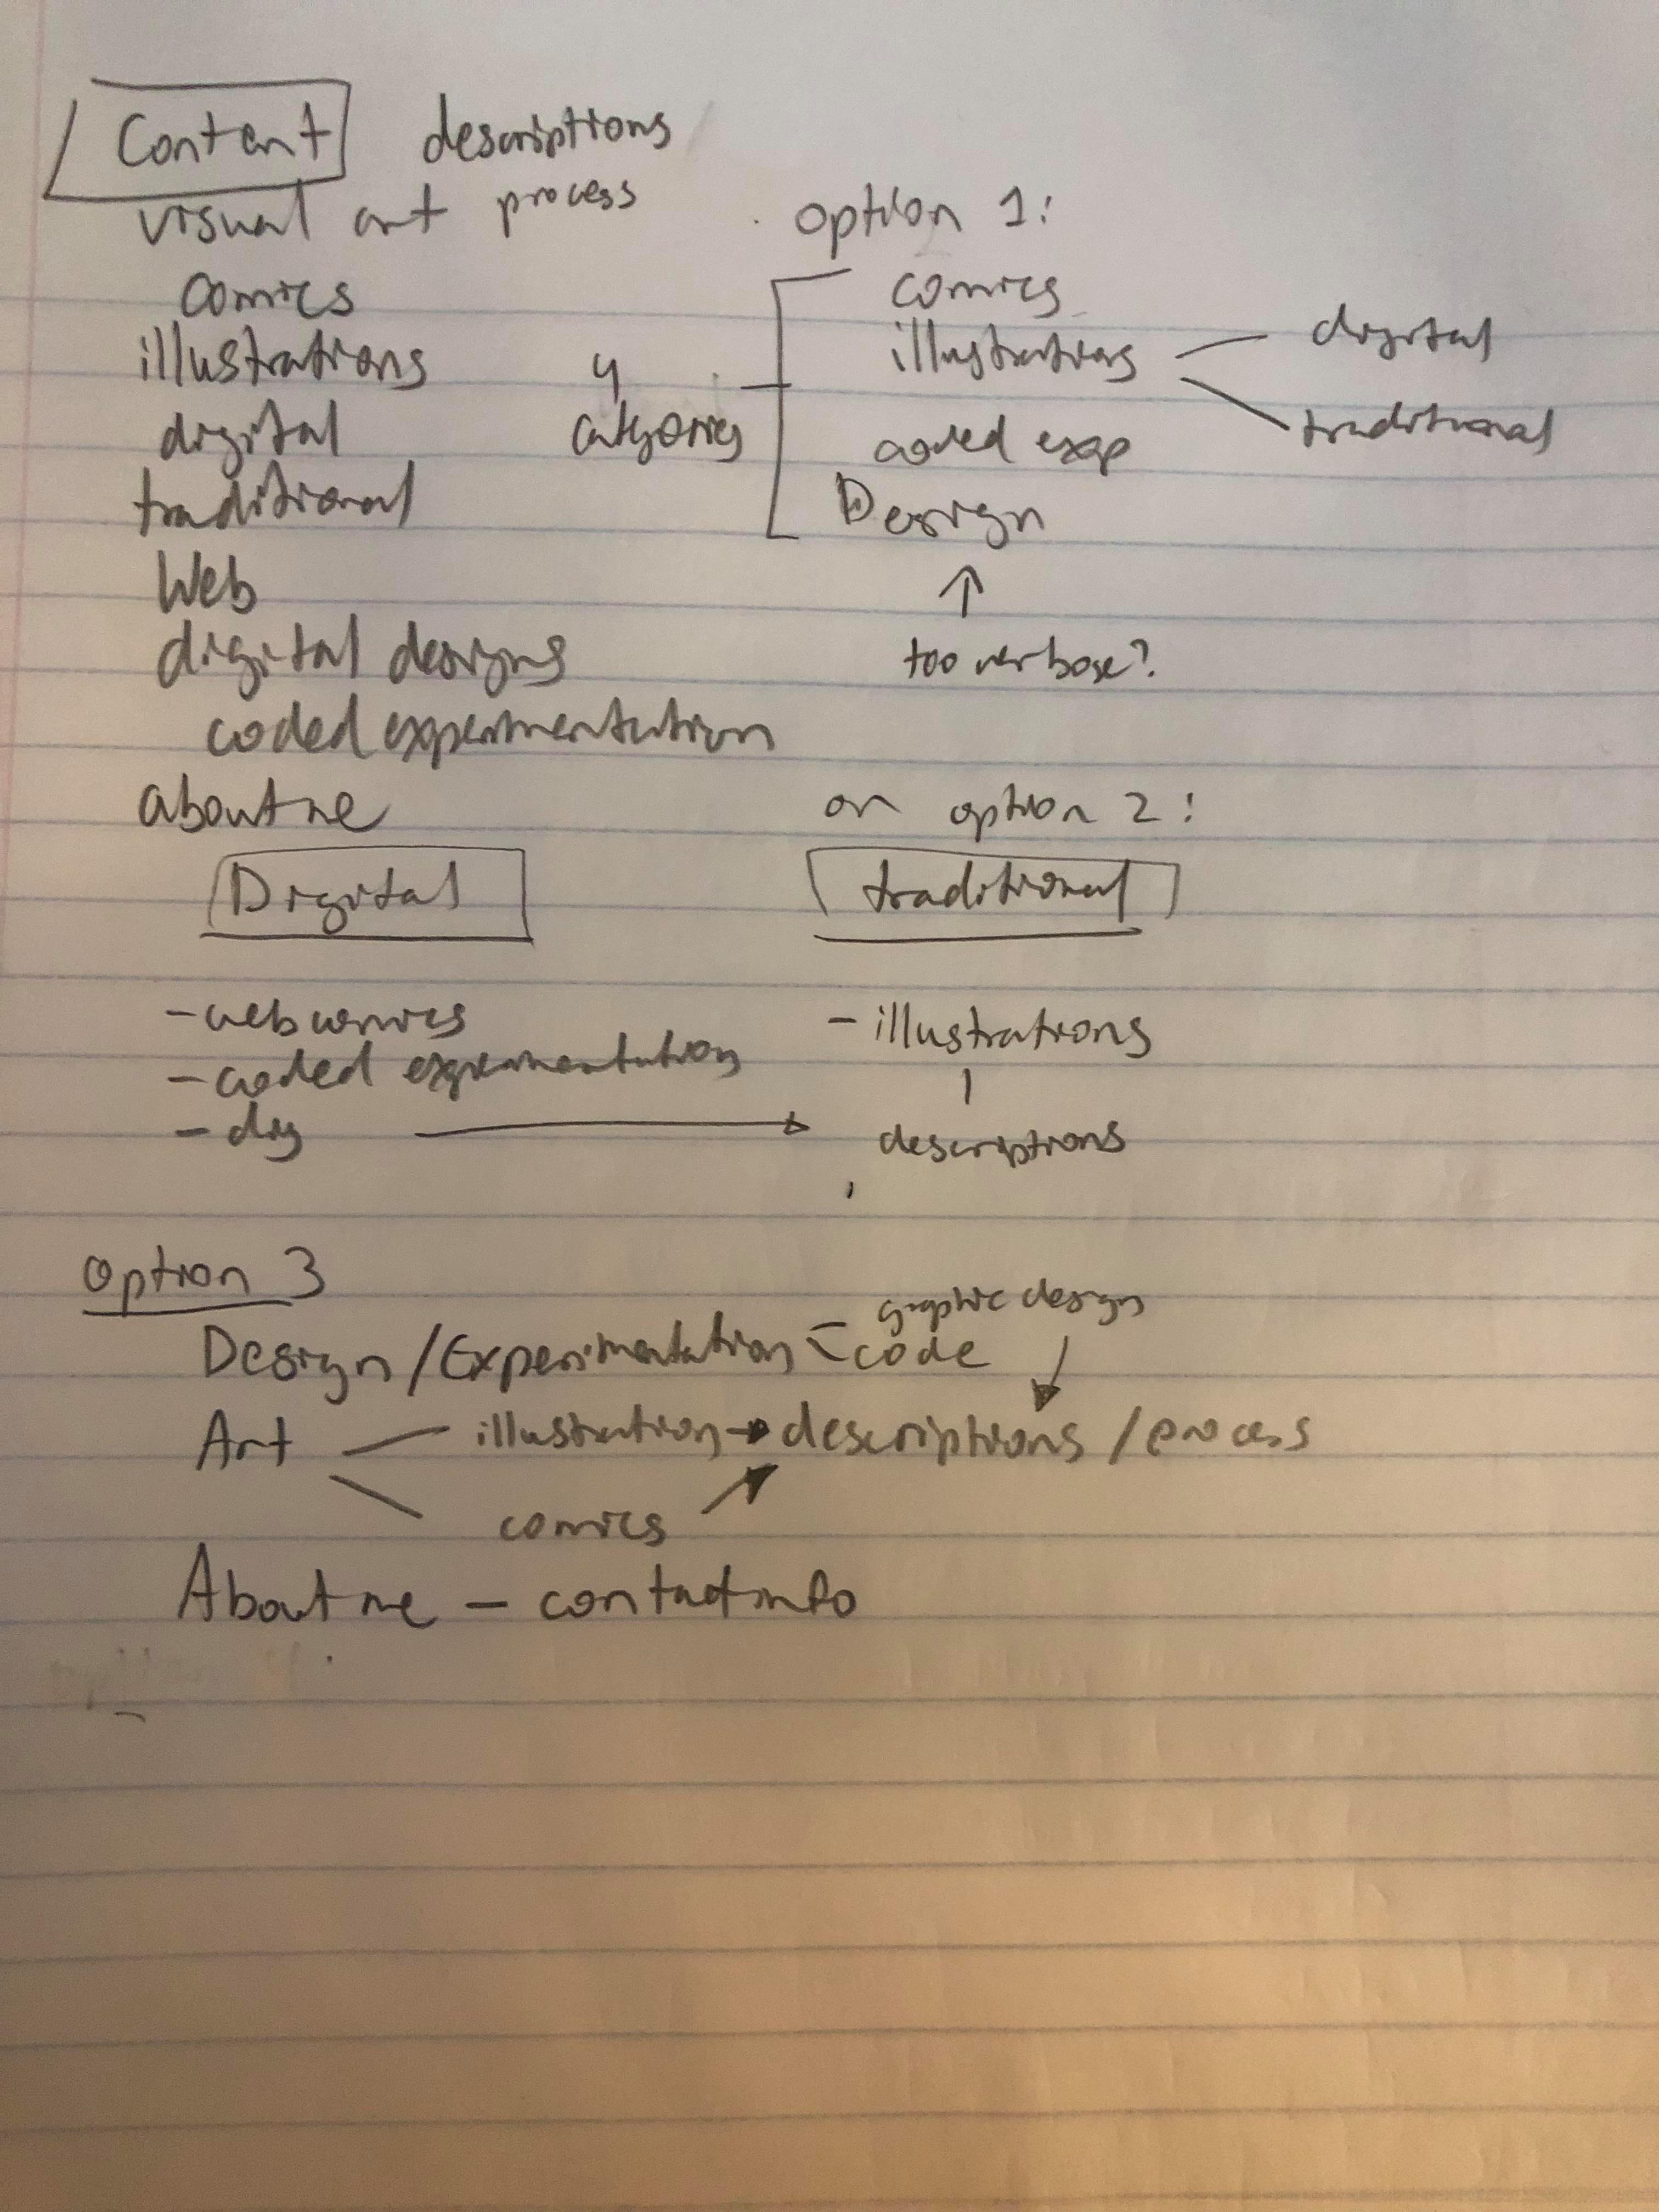 Content descriptions
visual art process
comics
illustrations
digital
traditional
Web
digital designs
coded experimentation
about me
4
categories
option 1:
comics
illustrations
digital
traditional
coded exp
Design
↑
too verbose?
or option 2:
Digital
- web comics
- coded experimentation
- dig
traditional
- illustrations
descriptions
Option 3
Design/Experimentation
graphic design
code
Art illustration → descriptions/process
comics
About me - contact info